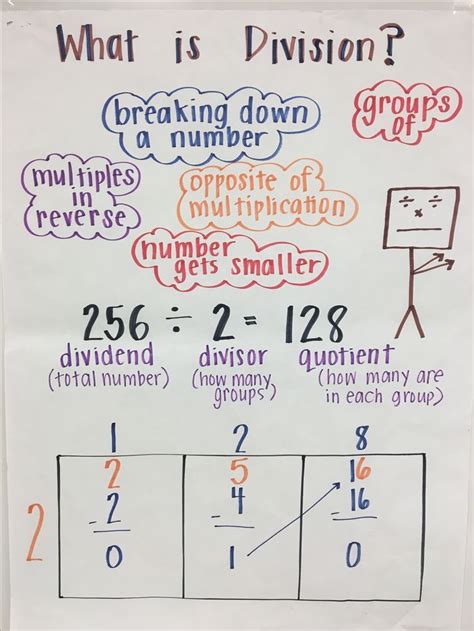 What is Division?
breaking down
a number
groups
of
multiples
in
reverse
opposite of
multiplication
number
gets smaller
256 ÷ 2 = 128
dividend divisor quotient
(total number) (how many
groups) (how many are
in each group)
1 2 8
2 5 16
2 -2 -4 -16
0 1 0